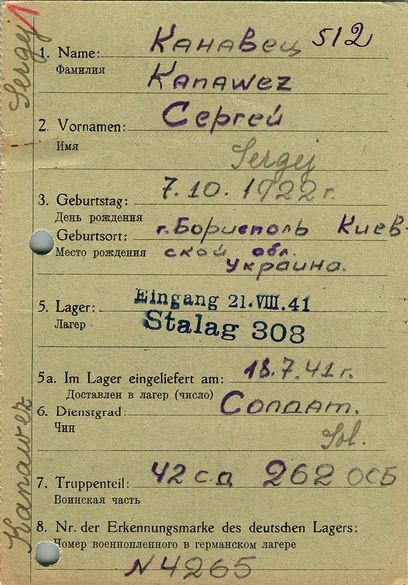 Sergej 1
1. Name: Канавец 512
Фамилия
Kanawez
2. Vornamen: Сергей
Имя
Sergej
3. Geburtstag: 7.10.1922 г.
День рождения
Geburtsort: г. Борисполь Киев-
Место рождения ской обл.
Украина.
5. Lager: Eingang 21.VIII.41
Лагерь Stalag 308
5a. Im Lager eingeliefert am: 18.7.41 г.
Доставлен в лагерь (число)
6. Dienstgrad: Солдат.
Чин
Sol.
7. Truppenteil: 42 сд 262 ОСБ
Воинская часть
8. Nr. der Erkennungsmarke des deutschen Lagers:
Номер военнопленного в германском лагере
N 4265
Kanawez